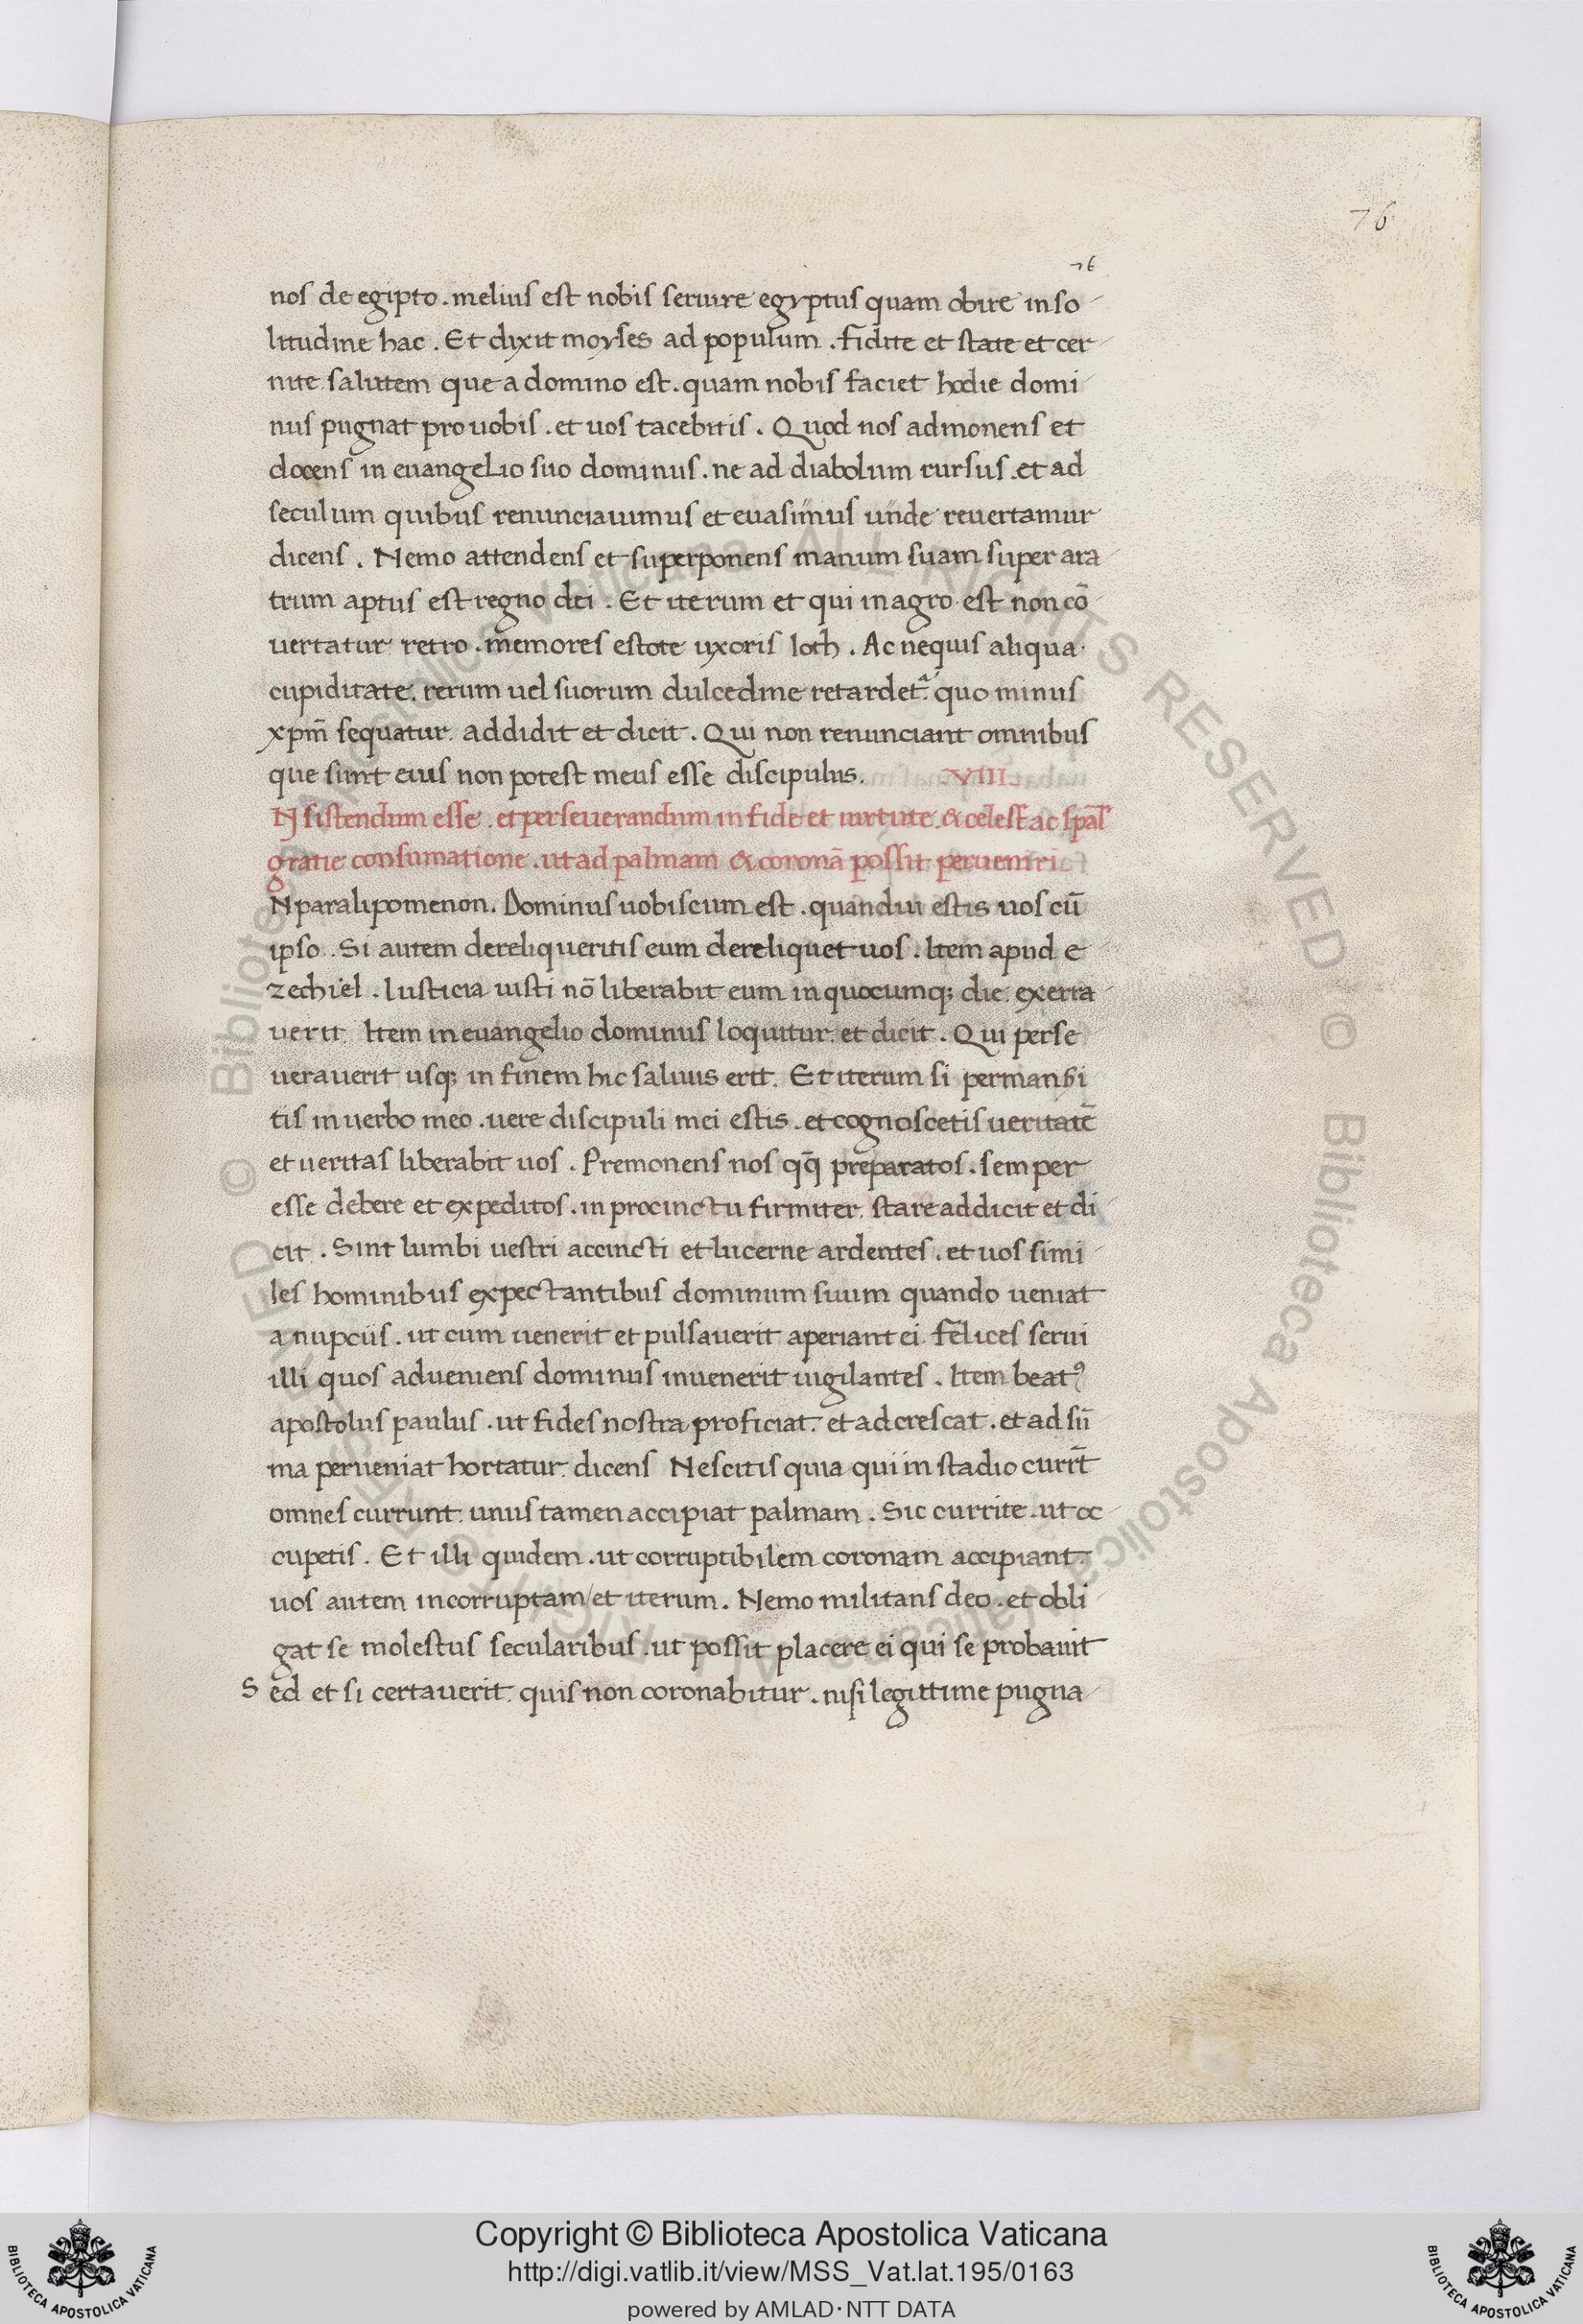 76
76
nos de egipto . melius est nobis seruire egyptus quam obire in so
litudine hac . Et dixit moyses ad populum . fidite et state et cer
nite salutem que a domino est . quam nobis faciet hodie domi
nus pugnat pro uobis . et uos tacebitis . Quod nos admonens et
docens in euangelio suo dominus . ne ad diabolum rursus . et ad
seculum quibus renunciauimus et euasimus unde reuertamur
dicens . Nemo attendens et superponens manum suam super ara
trum aptus est regno dei . Et iterum et qui in agro est non cō
uertatur retro . memores estote uxoris loth . Ac nequis aliqua
cupiditate rerum uel suorum dulcedine retardet quo minus
xp̄m sequatur addidit et dicit . Qui non renunciant omnibus
que sunt eius non potest meus esse discipulus . .VIII.
N sistendum esse . et perseuerandum in fide et uirtute . & celest ac sp̄al
gratie consumatione . ut ad palmam & coronā possit perueniri
N paralipomenon . Dominus uobiscum est . quandiu estis uos cū
ipso . Si autem dereliqueritis eum dereliquet uos . Item apud e
zechiel . Iusticia iusti nō liberabit eum in quocumq; die exerra
uerit Item in euangelio dominus loquitur et dicit . Qui perse
uerauerit usq; in finem hic saluus erit . Et iterum si permanseri
tis in uerbo meo . uere discipuli mei estis . et cognoscetis ueritatē
et ueritas liberabit uos . Premonens nos qq̄ preparatos . semper
esse debere et expeditos . in procinctu firmiter stare addicit et di
cit . Sint lumbi uestri accincti et lucerne ardentes . et uos simi
les hominibus expectantibus dominum suum quando ueniat
a nupciis . ut cum uenerit et pulsauerit aperiant ei felices serui
illi quos adueniens dominus inuenerit uigilantes . Item beatꝰ
apostolus paulus . ut fides nostra proficiat et adcrescat . et ad sū
ma perueniat hortatur dicens Nescitis quia qui in stadio currt̄
omnes currunt unus tamen accipiat palmam . Sic currite . ut oc
cupetis . Et illi quidem . ut corruptibilem coronam accipiant
uos autem incorruptam/et iterum . Nemo militans deo . et obli
gat se molestus secularibus . ut possit placere ei qui se probauit
S ed et si certauerit quis non coronabitur . nisi legittime pugna
© Biblioteca Apostolica Vaticana ALL RIGHTS RESERVED
© Biblioteca Apostolica Vaticana ALL RIGHTS RESERVED
BIBLIOTECA APOSTOLICA VATICANA
Copyright © Biblioteca Apostolica Vaticana
http://digi.vatlib.it/view/MSS_Vat.lat.195/0163
powered by AMLAD·NTT DATA
BIBLIOTECA APOSTOLICA VATICANA